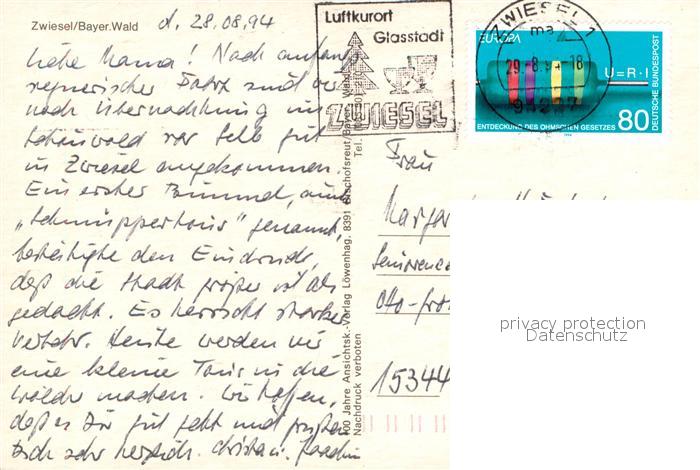 Zwiesel/Bayer.Wald
d. 28.08.94
Liebe Mama! Nach anfangs
regnerischer Fahrt sind wir
nach Übernachtung im
vor Selb gut
in Zwiesel angekommen.
Ein erster Bummel, auch
"Schnuppertour" genannt,
bestätigte den Eindruck,
daß die Stadt größer ist als
gedacht. Es herrscht starker
Verkehr. Heute werden wir
eine kleine Tour in die
Wälder machen. Wir hoffen,
daß es Dir gut geht und grüßen
Dich sehr herzlich. Christa u. Joachim
100 Jahre Ansichtsk.-Verlag Löwenhag, 8391 Bischofsreut/Bayer. Wald
Nachdruck verboten
Tel.
Luftkurort
Glasstadt
ZWIESEL
ZWIESEL 1
ma
29.-8.94-18
94227
EUROPA
U=R·I
ENTDECKUNG DES OHMSCHEN GESETZES
80
DEUTSCHE BUNDESPOST
1994
Frau
Margar
Seniorenz
Otto-Gro
15344
privacy protection
Datenschutz